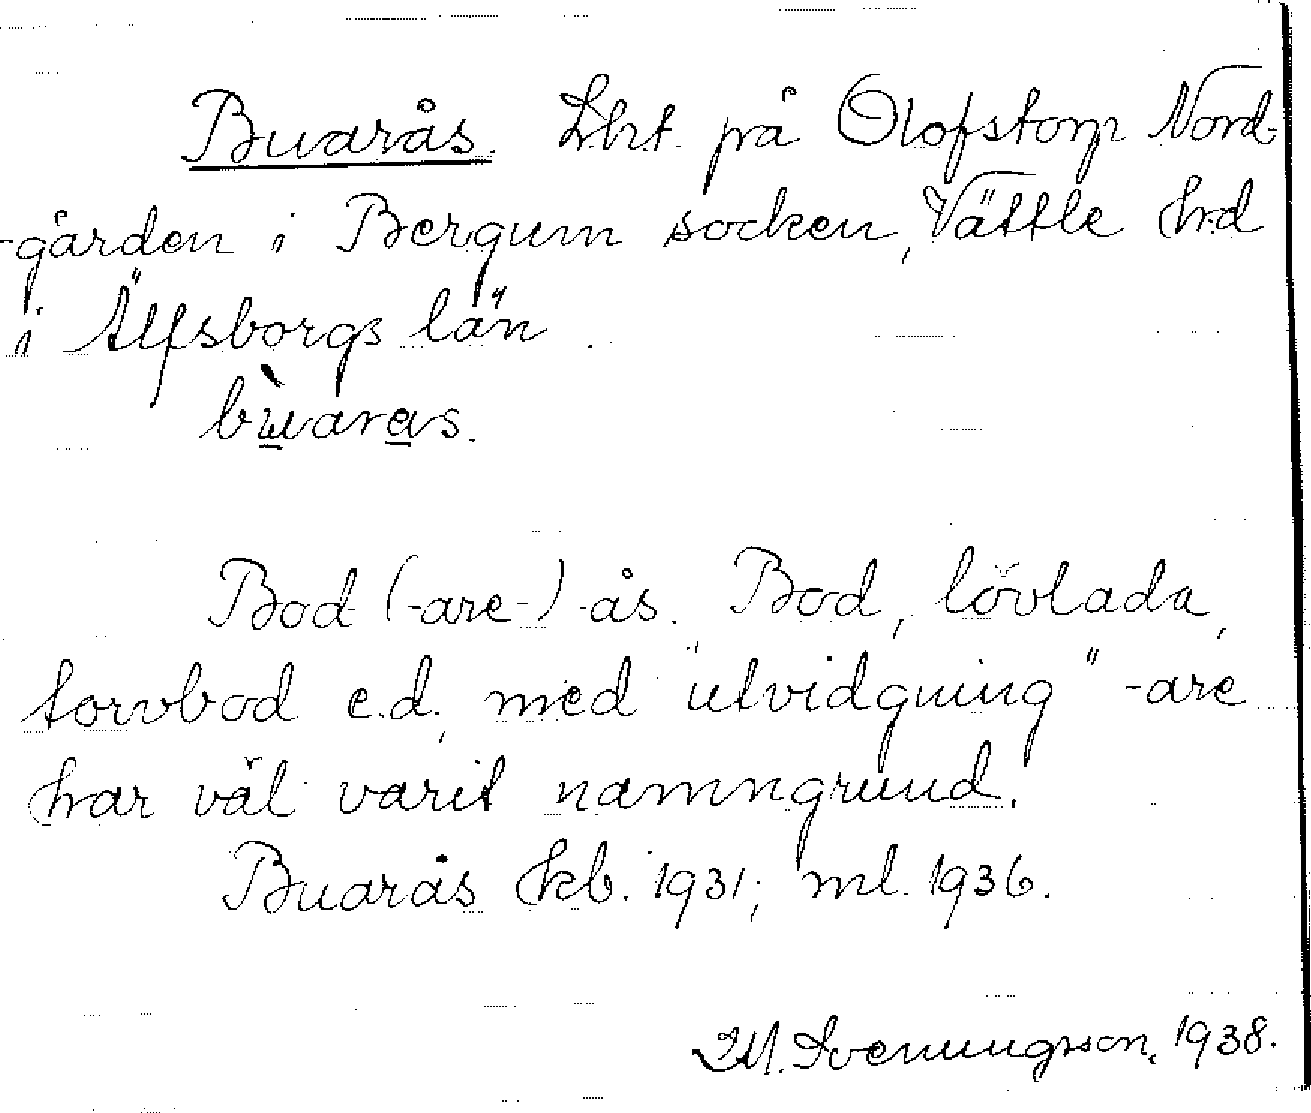 Buarås. Lht. på Olofstorp Nord-
-gården i Bergum socken, Vättle hd
i Älfsborgs län.
bùaras.
Bod (-are-) -ås. Bod, lövlada,
torvbod e.d., med "utvidgning" -are
har väl varit namngrund.
Buarås hkb. 1931; ml. 1936.
M. Svenungsson, 1938.